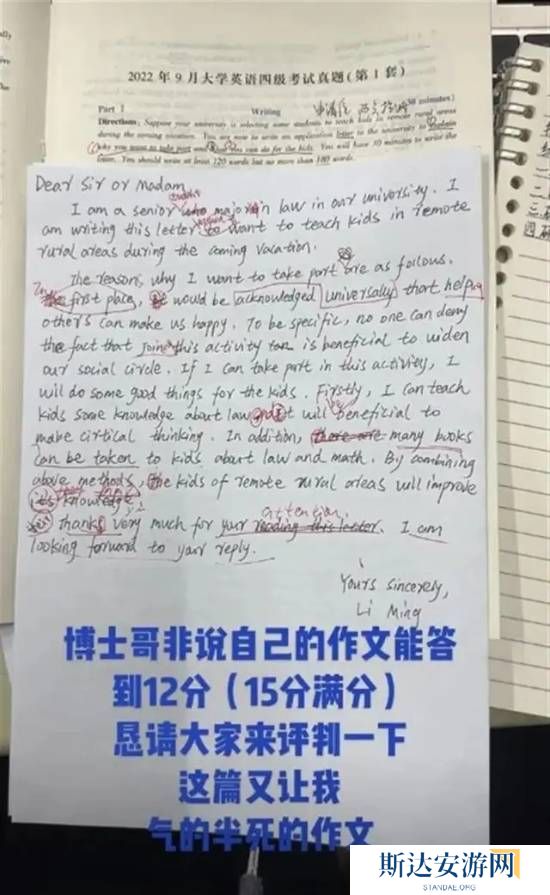 2022年9月大学英语四级考试真题(第1套)
Part I Writing (30 minutes)
Directions: Suppose your university is selecting some students to teach kids in remote rural areas
during the coming vacation. You are now to write an application letter to the university to explain
why you want to take part and what you can do for the kids. You will have 30 minutes to write the
letter. You should write at least 120 words but no more than 180 words.
Dear Sir or Madam
I am a senior who major in law in our university. I
am writing this letter to want to teach kids in remote
rural areas during the coming vacation.
The reasons why I want to take part are as follows.
The first place, would be acknowledged universally that helping
others can make us happy. To be specific, no one can deny
the fact that join this activity is beneficial to widen
our social circle. If I can take part in this activity, I
will do some good things for the kids. Firstly, I can teach
kids some knowledge about law and it will beneficial to
make cirtical thinking. In addition, there are many books
can be taken to kids about law and math. By combining
above methods, the kids of remote rural areas will improve
its knowledge.
attention
thanks very much for your reading this letter. I am
looking forward to your reply.
Yours sincerely,
Li Ming
博士哥非说自己的作文能答
到12分(15分满分)
恳请大家来评判一下
这篇又让我
气的半死的作文
斯达安游网
STANDAE.ORG